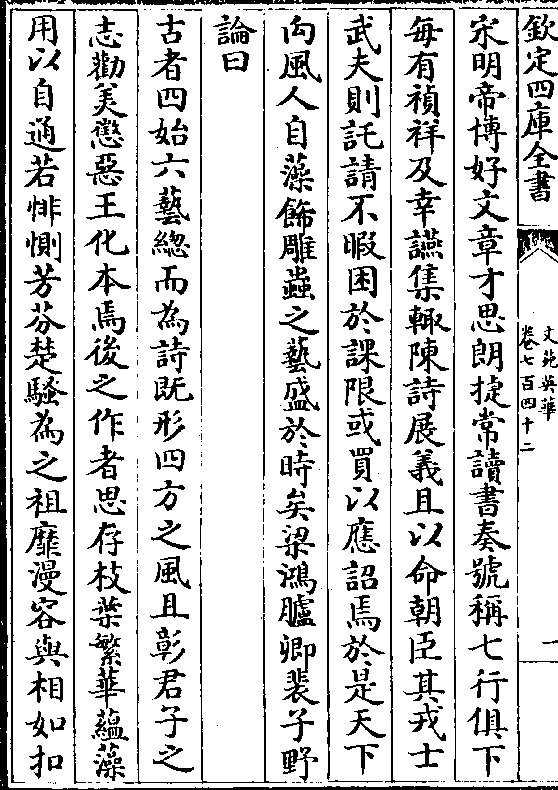 欽定四庫全書
文苑英華
卷七百四十二
一
宋明帝博好文章才思朗捷常讀書奏號稱七行俱下
每有禎祥及幸讌集輙陳詩展義且以命朝臣其戎士
武夫則託請不暇困於課限或買以應詔焉於是天下
向風人自藻飾雕蟲之藝盛於時矣梁鴻臚卿裴子野
論曰
古者四始六藝總而為詩既形四方之風且彰君子之
志勸美懲惡王化本焉後之作者思存枝葉繁華蘊藻
用以自通若悱惻芳芬楚騷為之祖靡漫容與相如扣